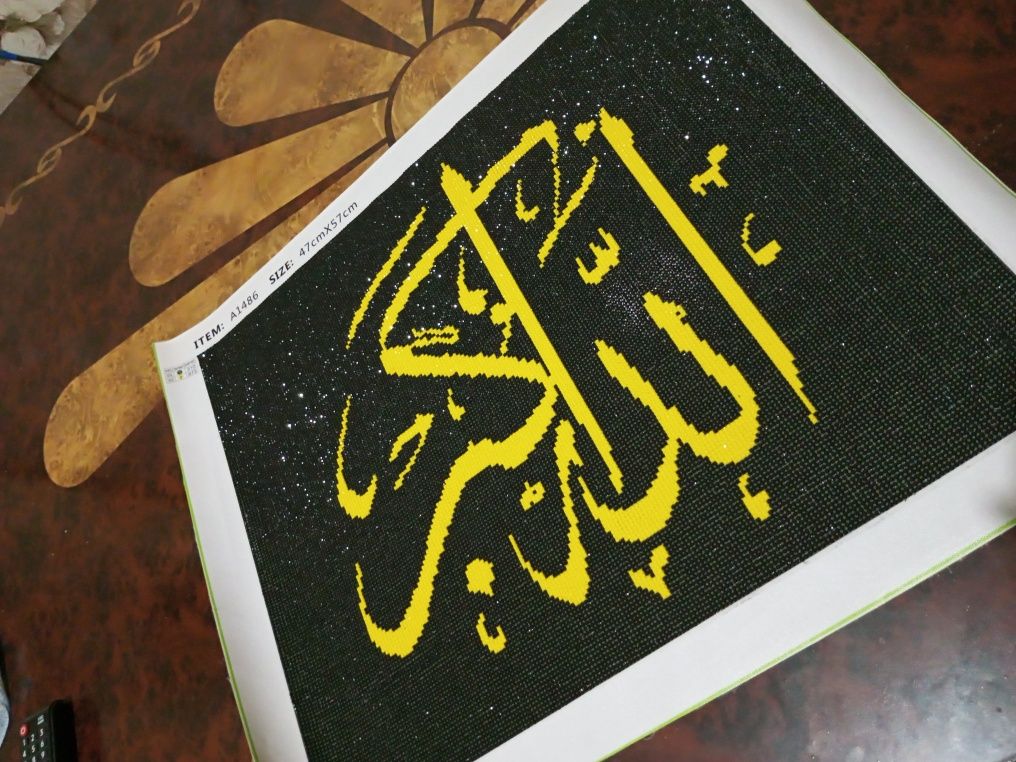 الله أكبر
ITEM: A1486 SIZE: 47cmX57cm